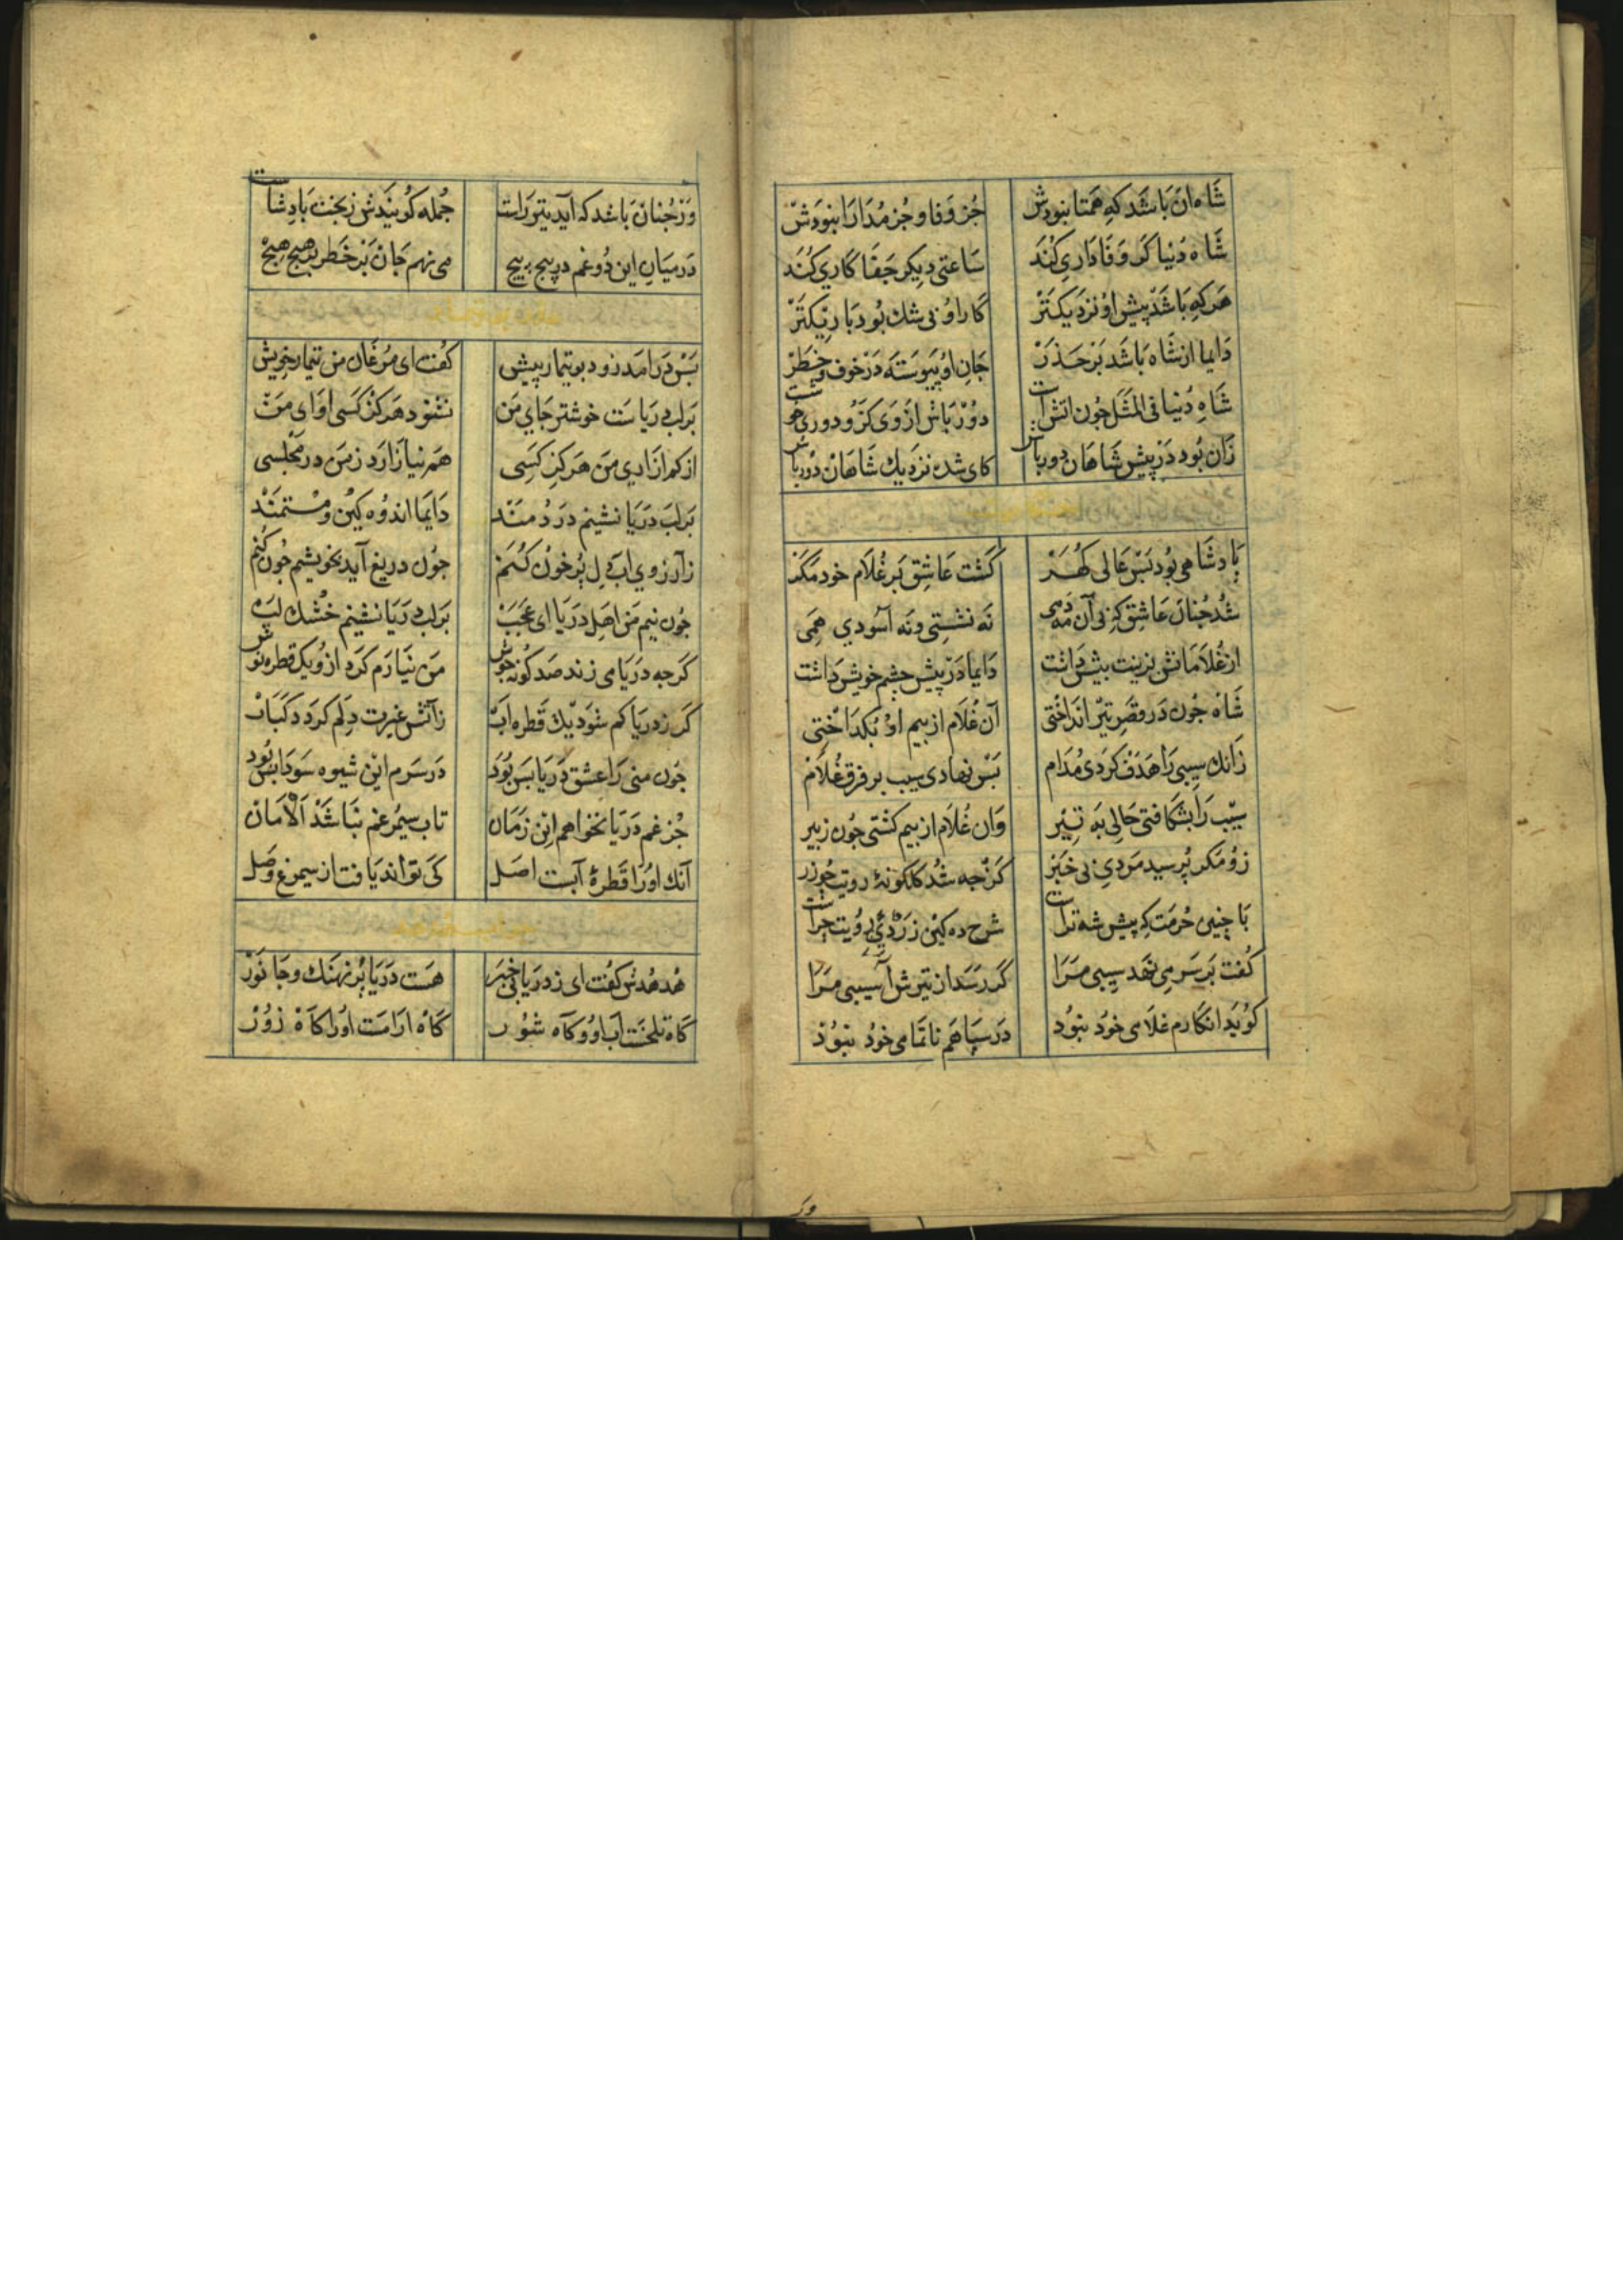 شَاه اَنْ بَاشَد کِه هَمتَا نبودش جُز وَفا و جُز مُدَارَا نبوَدَش
شَاه دُنیَا کَر وَفَادَارِی کُنَد سَاعتی دِیکَر جَفَا کَارِي کُنَد
هَرکِه بَاشَد پیش اوُ نَزدِیکتَرْ کَار اوُ بی شك بُوَد بَاریکتَرْ
دَایما از شَاه بَاشَد بَر حَذَرْ جَانِ اوُ پَیوستَه دَرْ خوف و خَطَرْ
شَاهِ دُنیا فی المثَل جُون اتش است دُورْ بَاش از وَی کَزو دوری خوشست
زَان بُود دَرْ پیش شَاهَان دورباش کای شده نزدیك شَاهَان دُورباش
پَادشَاهی بُود بَسْ عَالی کُهَرْ کَشت عَاشِق بَر غُلَام خود مَکَر
شُد جُنان عَاشِق که بی آن مَه دَمی نَه نشستی و نَه آسودي هَمی
از غُلَامَانش بزینت بیش دَاشت دَایما دَرْ پیش جشم خویش دَاشت
شَاه جُون دَر قصَر تیرْ اندَاختی آن غُلَام از بیم اوُ بکدَاختی
زَانك سیبی رَا هَدَف کَردی مُدَام بَسْ نهادی سیب بر فرق غُلَام
سِیْب رَا بشکافتی حَالِی بَه تِیر وَان غُلَام از بیم کشتی جُون زبیر
زوُ مَکَر پُرسید مَردِي بی خَبَرْ کَرْجه شُد کلکونۀ رویت جو زر
بَا جنین حُرمَت که پیش شه تراست شرح ده کین زَرْدِي رُویت جِراست
کُفت بَر سَر می نهَد سِیبی مَرَا کَر رَسَد از تیرش آسیبی مَرَا
کوُید انکارم غلَامی خُود نبوُد دَر سپَاهَم نَا تمَامی خوُد نبوُد
وَر جُنَان بَاشد که آید تیر رَاست جُمله کوُیندش ز بخت بَادشاست
دَر میَانِ این دُو غم در پیج پیج می نهم جَانْ بَر خَطَر بر هیج هیج
بَسْ دَرَامَد زود بوتیمار پیش کفت ای مُرغَان من تیمار خویش
بَر لب دریَاست خوشتر جَاي مَن نشنوَد هَرکز کَسی اوَای مَن
از کم ازَارِي مَن هَرکز کسَی هَم نیازَارَد ز مَن در مجلسی
بَر لب دَریَا نشینم دَردُمنَد دَایمَا اندوُه کین و مُستمَند
ز آرزوي اب دِل پُرخون کُنَم جُون دریغ آید نخویشم جُون کُنم
جُون نیم مَن اهِل دَریَا ای عَجَب بَر لب دَریَا نشینم خُشك لَب
کَرجه دَریَا می زند صَد کونه جوش مَن نیَارَم کَرد ازو یك قطره نوش
کَر ز دریَا کم شَوَد یك قَطره اب ز آتش غیرت دِلم کَردَد کبَاب
جُون منی رَا عشق دَریَا بَس بُوَد دَر سَرم این شیوه سَودَا بس بُود
جُز غم دَریَا نخواهم این زمَان تاب سیمُرغم نبَاشَد اَلْامَان
آنك اوُ رَا قَطرۀ آبست اصَل کَی توَاند یَافت از سیمرغ وصَل
هُدهُدش کفُت ای ز دَریَا بی خبَر هَست دَریَا پُر نهَنك و جَانوَرْ
کَاه تلخَست اَب اوُ و کَاه شوُر کَاه ارَامَست اوُرا کَاهْ زوُرْ
ور